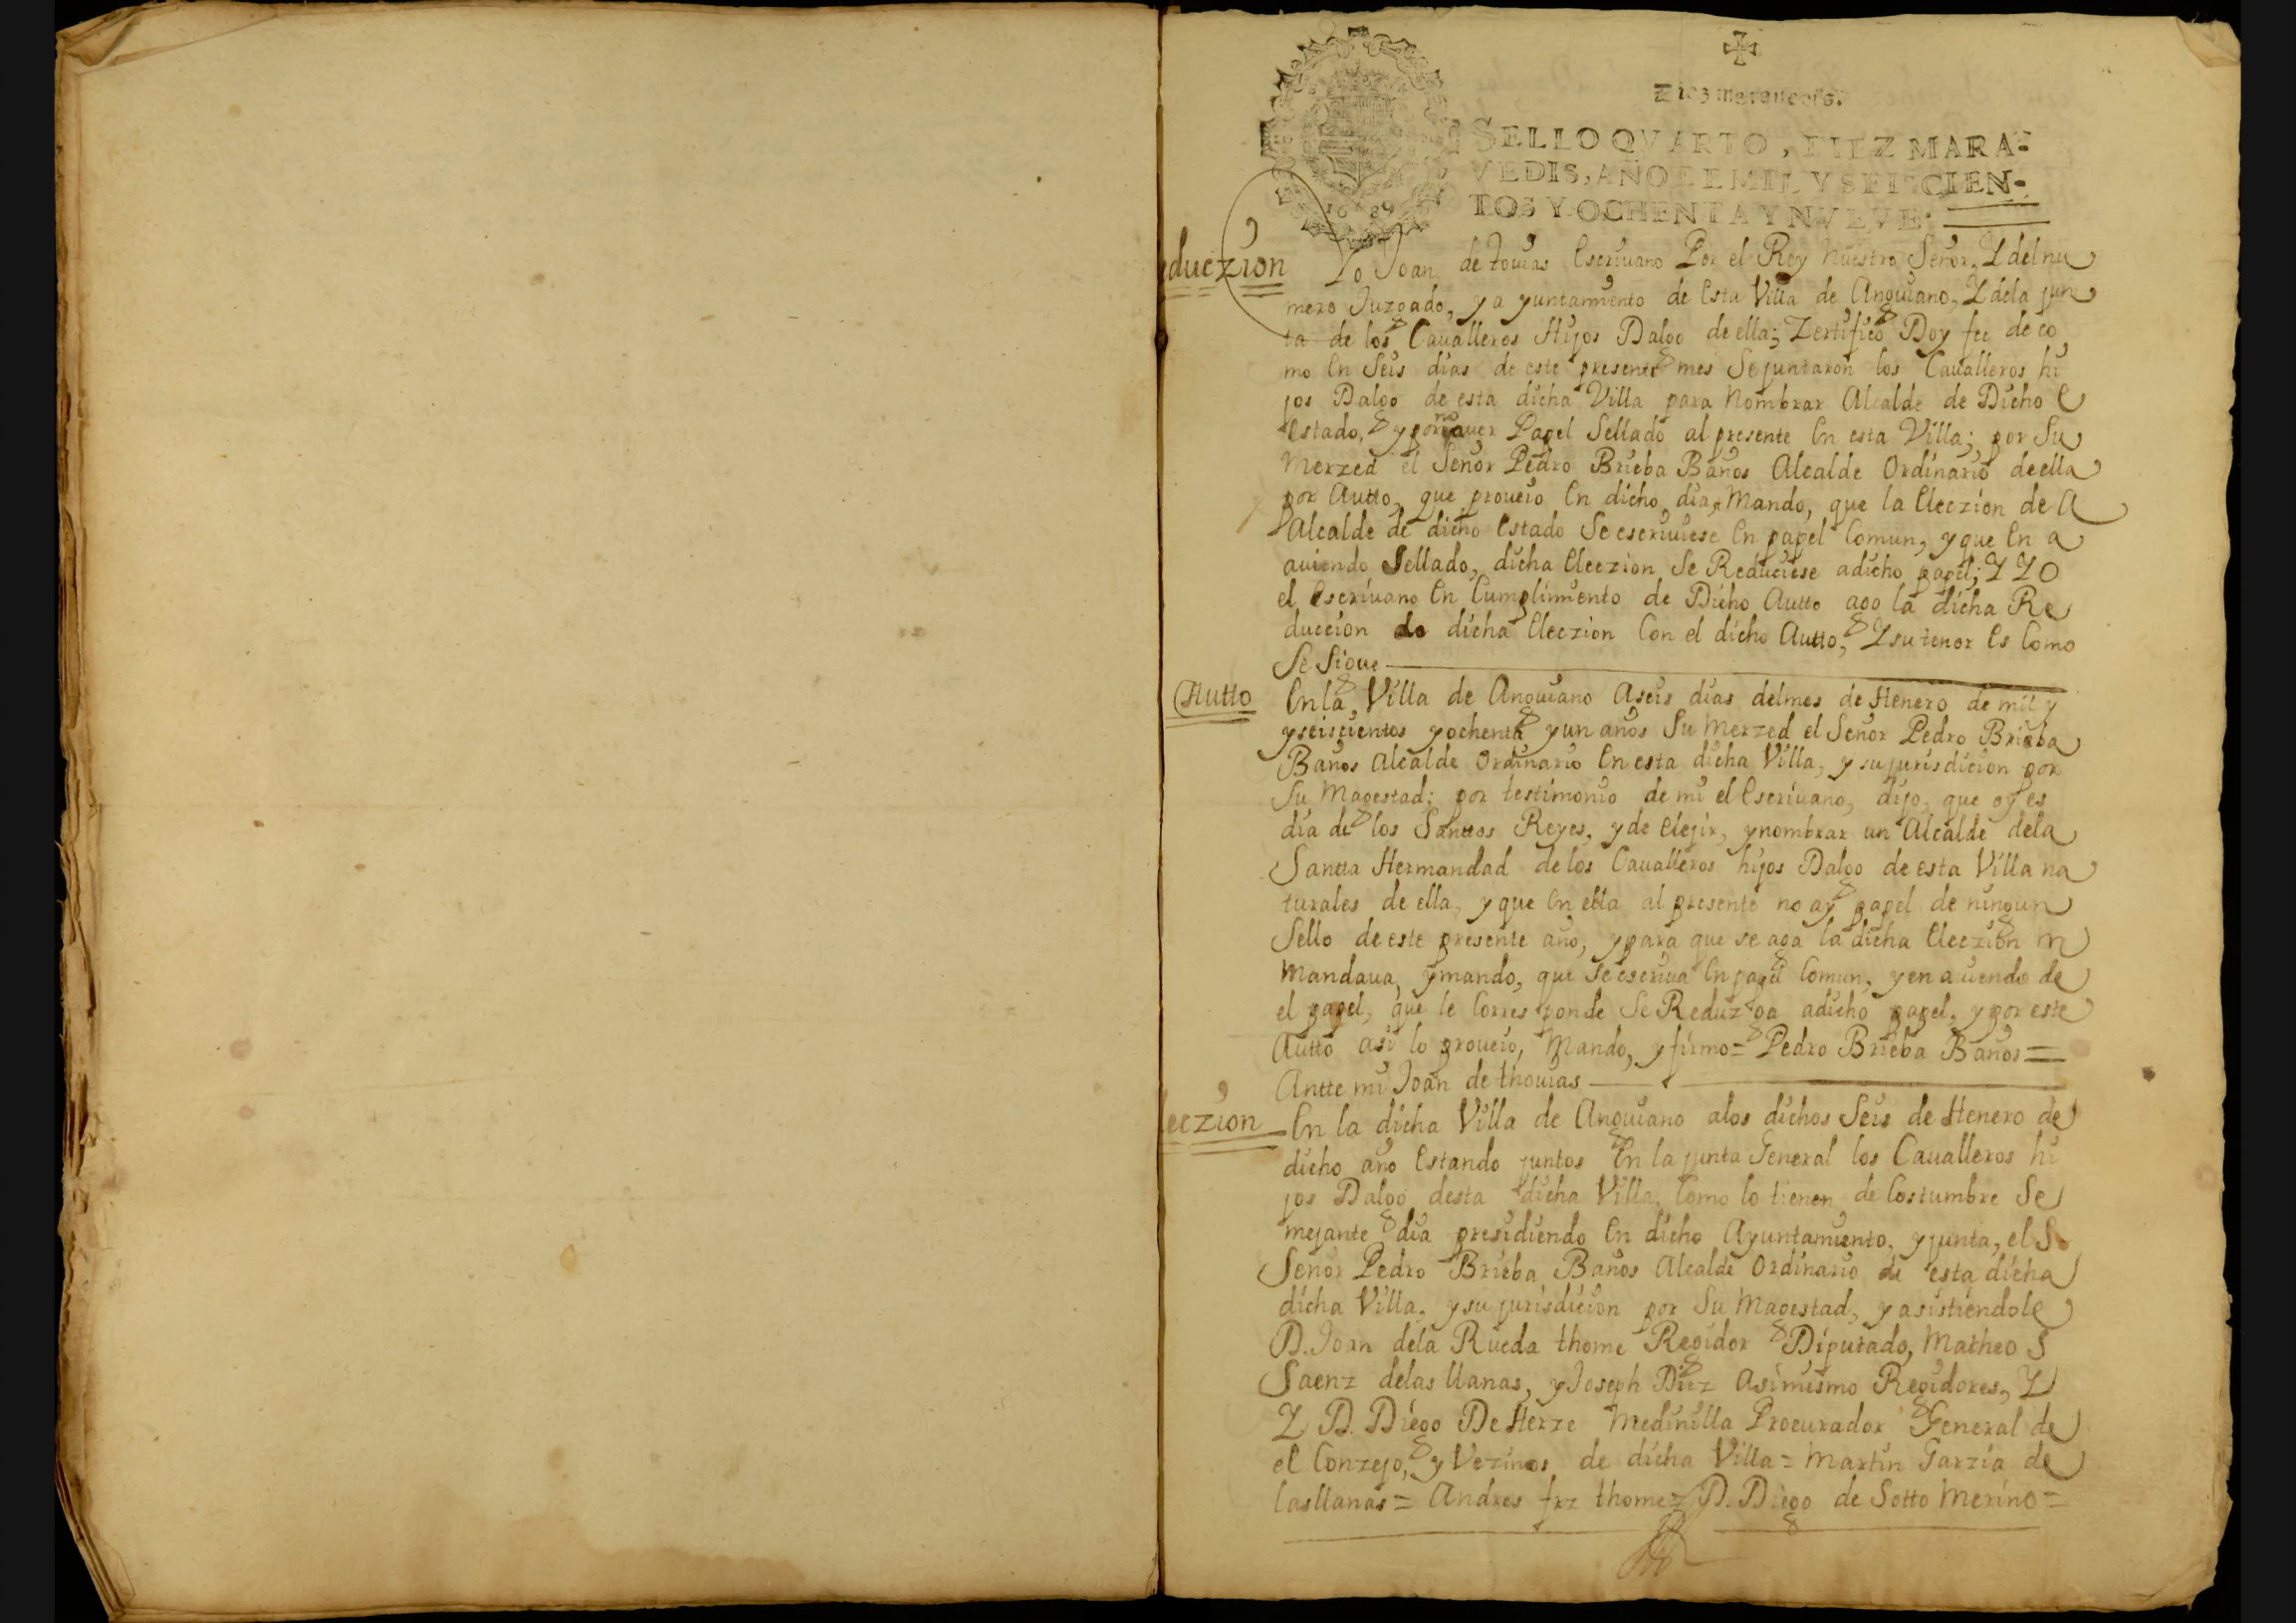 Diez maravedis.
SELLO QVARTO, DIEZ MARA-
VEDIS, AÑO DE MIL Y SEISCIEN-
TOS Y OCHENTA Y NVEVE.
1689
duczion
Yo Joan de touias Escriuano Por el Rey Nuestro Señor, Y del nu
mero Juzgado, y ayuntamiento de Esta Villa de Anguiano, Y dela jun
ta de los Caualleros Hijos Dalgo de ella; Zertifico Doy fee de co
mo En Seis dias de este presente mes Se juntaron los Caualleros hi
jos Dalgo de esta dicha Villa para Nombrar Alcalde de Dicho E
Estado, y por no auer Papel Sellado al presente En esta Villa; por Su
Merzed el Señor Pedro Brieba Baños Alcalde Ordinario de ella
por Autto, que proueio En dicho dia, Mando, que la Eleczion de A
Alcalde de dicho Estado Se escriuiese En papel Comun, y que En a
auiendo Sellado, dicha Eleczion Se Reduciese a dicho papel; Y YO
el Escriuano En Cumplimiento de Dicho Autto ago la dicha Re
duccion de dicha Eleczion Con el dicho Autto, Y su tenor Es Como
Se Sigue
Autto
En la Villa de Anguiano A seis dias del mes de Henero de mil y
y seiscientos y ochenta y un años Su Merzed el Señor Pedro Brieba
Baños Alcalde Ordinario En esta dicha Villa, y su jurisdicion por
Su Magestad; por testimonio de mi el Escriuano, dijo, que oy es
dia de los Santtos Reyes, y de Elejir, y nombrar un Alcalde dela
Santta Hermandad de los Caualleros hijos Dalgo de esta Villa na
turales de ella, y que En ella al presente no ay papel de ningun
Sello de este presente año, y para que se aga la dicha Eleczion m
Mandaua, y mando, que se escriua En papel Comun, y en auiendo de
el papel, que le Corresponde Se Reduzga a dicho papel, y por este
Autto asi lo proueio, Mando, y firmo = Pedro Brieba Baños =
Antte mi Joan de thouias
leczion
En la dicha Villa de Anguiano a los dichos Seis de Henero de
dicho año Estando juntos En la junta General los Caualleros hi
jos Dalgo desta dicha Villa, Como lo tienen de Costumbre Se
mejante dia presidiendo En dicho Ayuntamiento, y junta, el S
Señor Pedro Brieba Baños Alcalde Ordinario de esta dicha
dicha Villa, y su jurisdicion por Su Magestad, y asistiendole
D. Joan dela Rueda thome Regidor Diputado, Matheo S
Saenz delas llanas, y Joseph Diez Asimismo Regidores, Y
Y D. Diego De Herze Medinilla Procurador General de
el Conzejo, y Vezinos de dicha Villa = Martin Garzia de
las llanas = Andres frz thome = D. Diego de Sotto Merino =